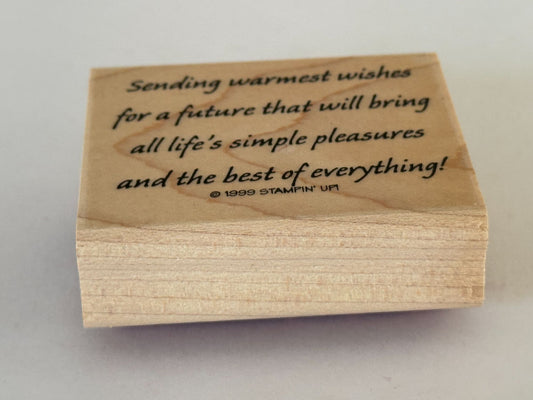 Sending warmest wishes
for a future that will bring
all life's simple pleasures
and the best of everything!
© 1999 STAMPIN' UP!